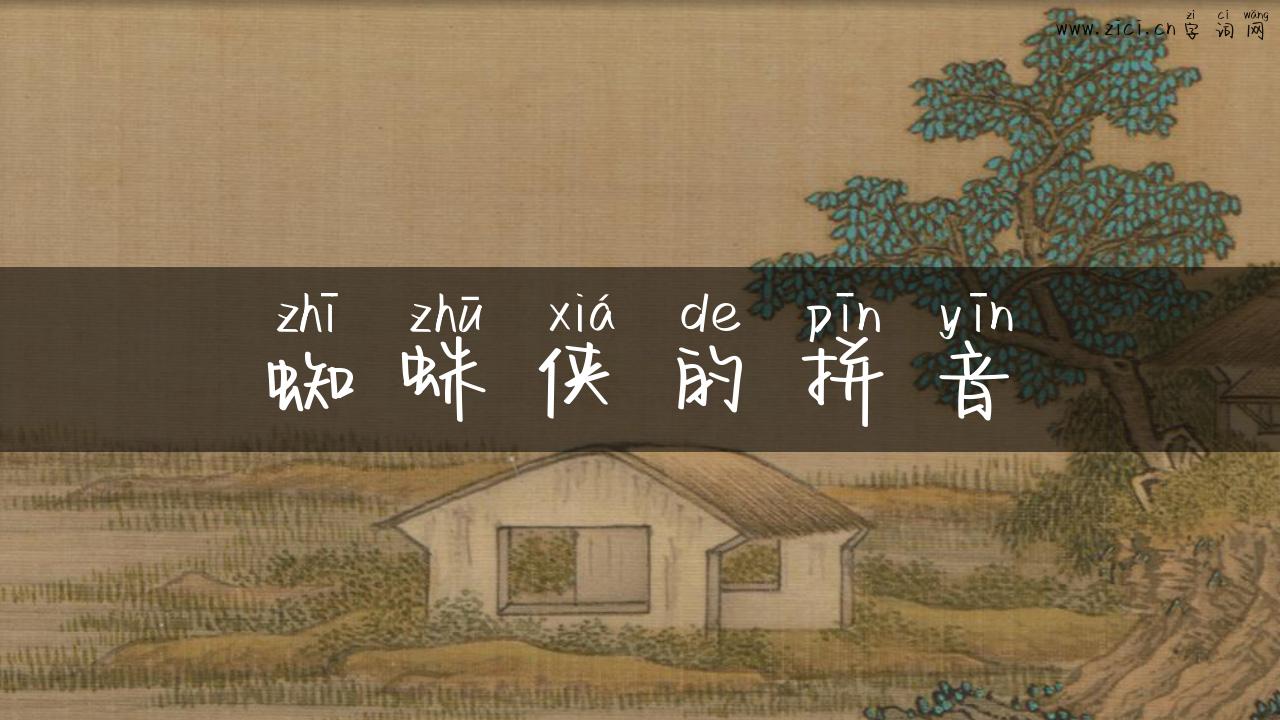 zì cí wǎng
www.zici.cn 字词网
zhī zhū xiá de pīn yīn
蜘蛛侠的拼音